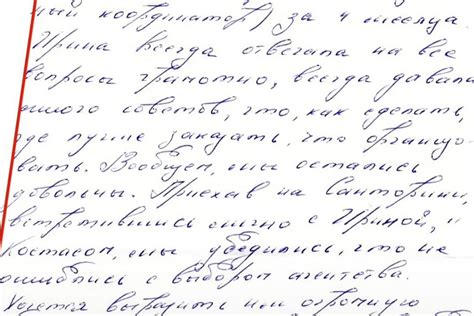 ный координатор) за 4 месяца
Ирина всегда отвечала на все
вопросы грамотно, всегда давала
много советов, что, как сделать,
где лучше заказать, что организо-
вать. Вообщем, мы остались
довольны. Приехав на Санторини,
встретившись лично с Ириной, и
Костасом, мы убедились, что не
ошиблись с выбором агентства.
Хочется выразить им огромную